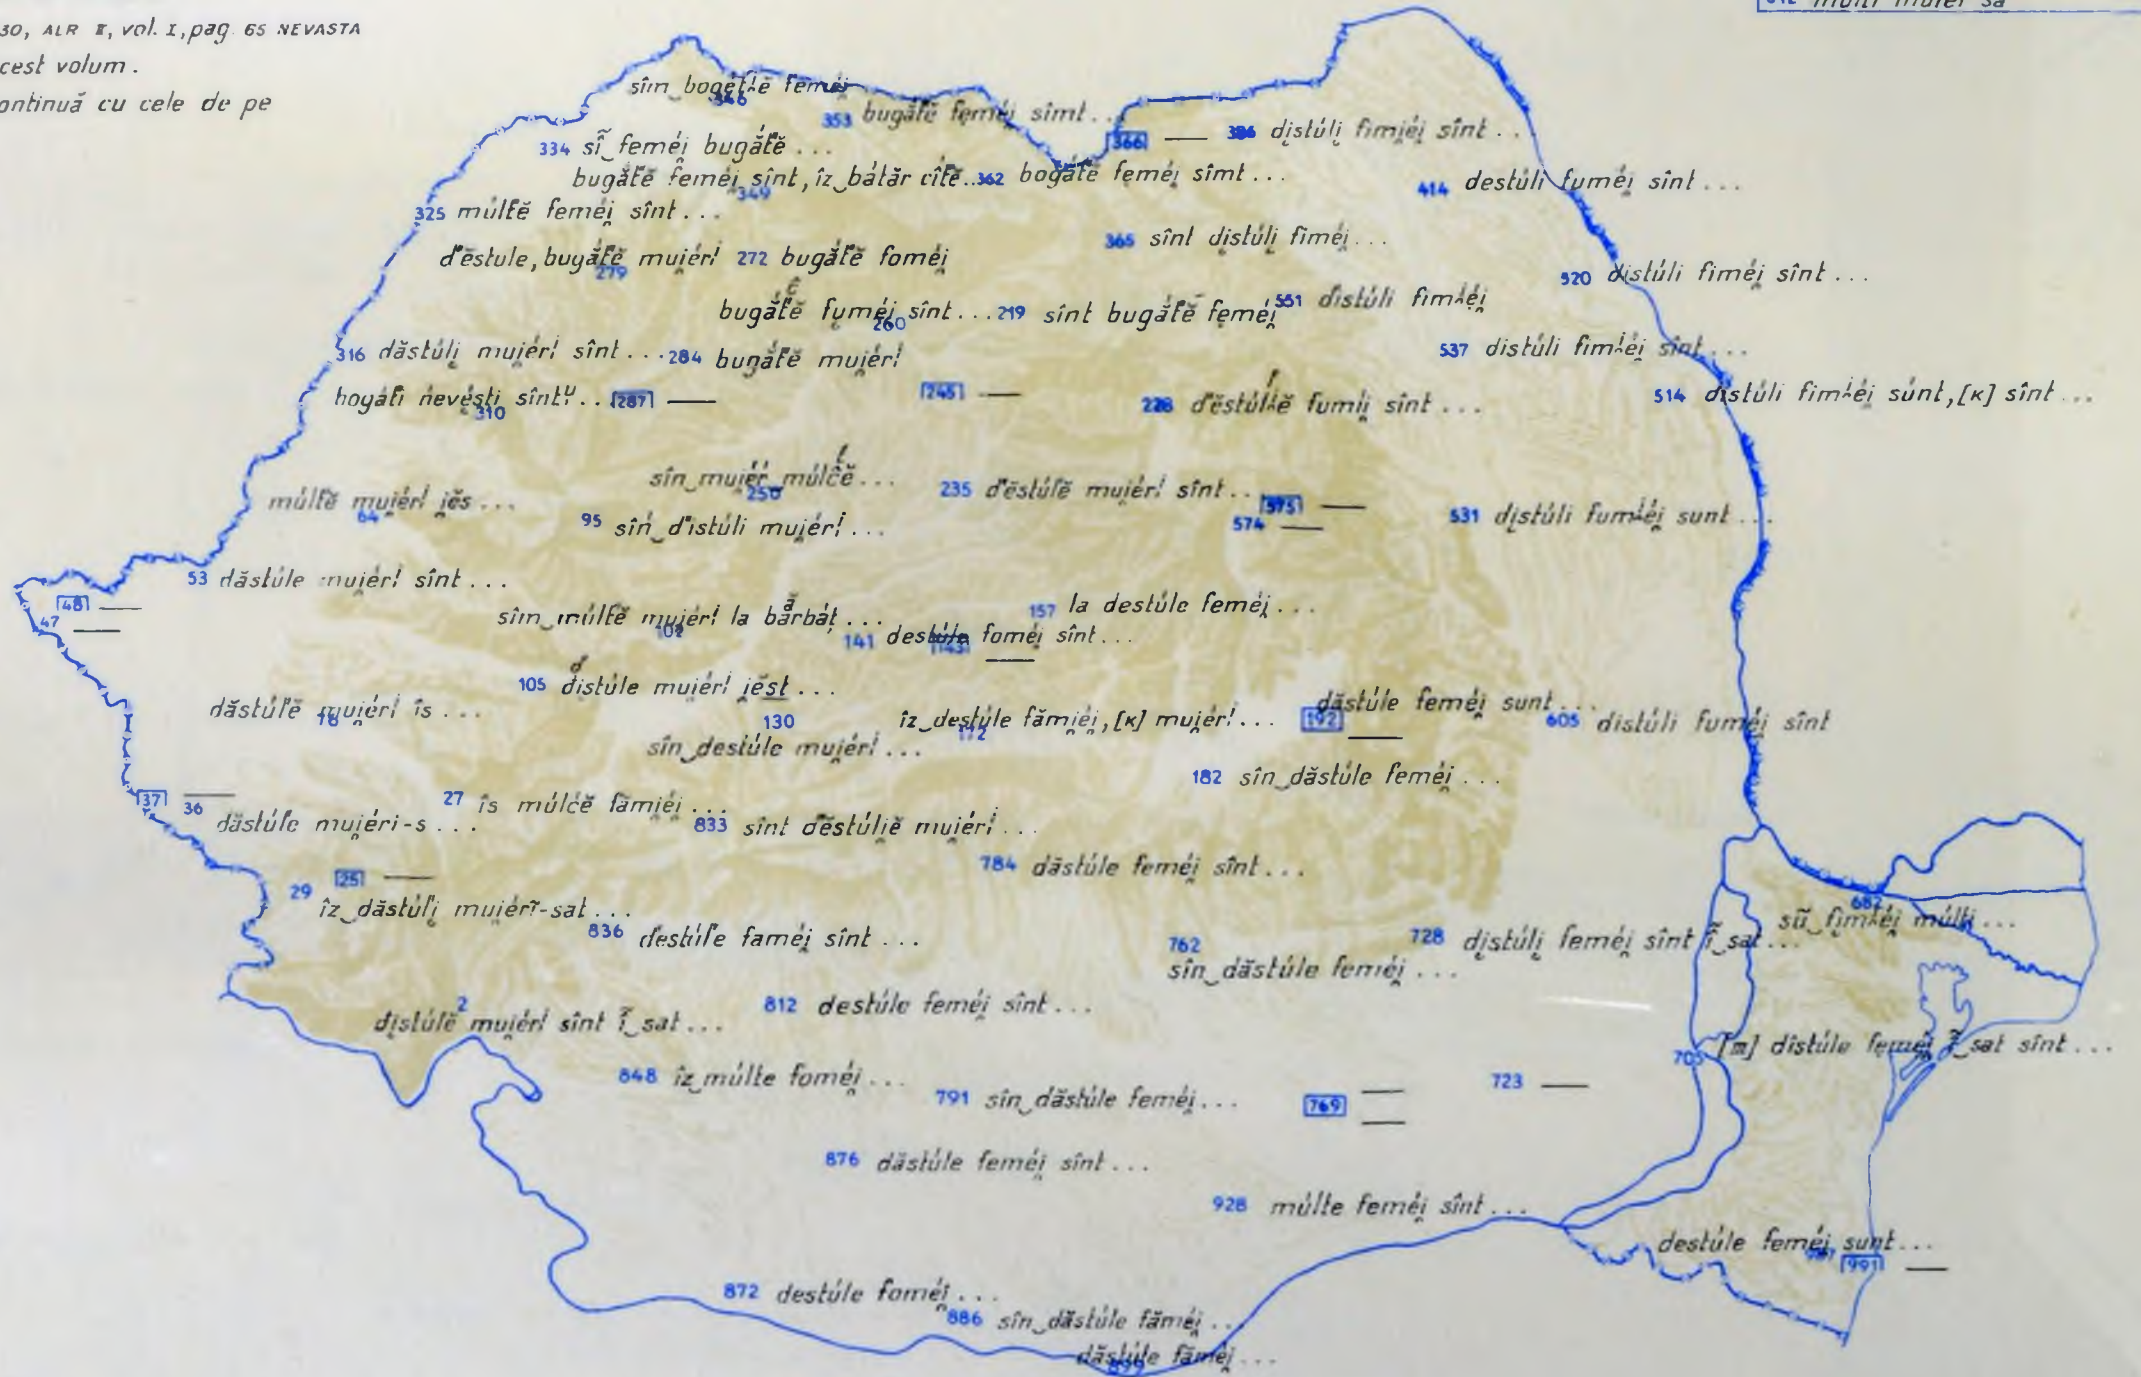 30, ALR II, vol. I, pag. 65 NEVASTA
cest volum.
ontinuă cu cele de pe
346 sîm‿bogắťĕ feméi̯
353 bugắťĕ feméi̯ sîmt...
366 —
386 di̯stúli̯ fimi̯éi̯ sînt...
334 sĩ‿feméi̯ bugắťĕ...
bugắťĕ feméi̯ sînt, îz‿bátăr cîťĕ...
349
362 bogắťĕ feméi̯ sîmt...
414 destúli fuméi̯ sînt...
325 múlťĕ feméi̯ sînt...
365 sînt di̯stúli̯ fiméi̯...
d'ĕstule, bugắťĕ mui̯érĭ
279
272 bugắťĕ foméi̯
520 distúli fiméi̯ sînt...
bugắťĕ fuméi̯ sînt...
260
219 sînt bugắťĕ feméi̯
551 distúli fimi̯éi̯
316 dăstúli̯ mui̯érĭ sînt...
284 bugắťĕ mui̯érĭ
537 distúli fimi̯éi̯ sînt...
310 nevéști sîntᵘ...
287 —
245 —
228 d'ĕstúľĕ fumii̯ sînt...
514 distúli fimi̯éi̯ súnt, [K] sînt...
64 múlťĕ mui̯érĭ i̯ĕs...
250 sîn‿mui̯ér‿múlĉĕ...
235 d'ĕstúľĕ mui̯érĭ sînt...
575 —
574 —
95 sîn‿d'istúli mui̯érĭ...
531 di̯stúli fumi̯éi̯ sunt...
53 dăstúle mui̯érĭ sînt...
48 —
47 —
102 sîm‿múlťĕ mui̯érĭ la bărbáț...
157 la destúle feméi̯...
141 destúle foméi̯ sînt...
143 —
105 distúle mui̯érĭ i̯ĕst...
18 dăstúľĕ mui̯érĭ îs...
130 sîn‿destúle mui̯érĭ...
172 îz‿destúle fămi̯éi̯, [K] mui̯érĭ...
dăstúle feméi̯ sunt...
192 —
605 distúli fuméi̯ sînt
182 sîn‿dăstúle feméi̯...
37 —
36 dăstúľe mui̯éri-s...
27 îs múlĉĕ fămi̯éi̯...
833 sînt d'ĕstúli̯ĕ mui̯érĭ...
784 dăstúle feméi̯ sînt...
25 —
29 îz‿dăstúľi̯ mui̯ér ĩ-sat...
836 d'estúľe faméi̯ sînt...
762 sîn‿dăstúle feméi̯...
728 di̯stúli̯ feméi̯ sînt ĩ‿sat...
682 sũ‿fimi̯éi̯ múlti...
2 di̯stúľĕ mui̯érĭ sînt ĩ‿sat...
812 destúle feméi̯ sînt...
705 [m] distúle feméi̯ ĩ‿sat sînt...
848 îz‿múlte foméi̯...
791 sîn‿dăstúle feméi̯...
769 —
—
723 —
876 dăstúle feméi̯ sînt...
928 múlte feméi̯ sînt...
destúle feméi̯ sunt...
991 —
872 destúle foméi̯...
886 sîn‿dăstúle făméi̯...
899 dăstúle făméi̯...